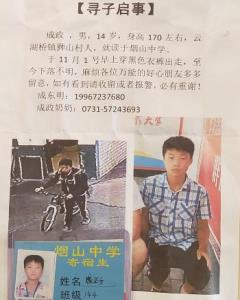 【寻子启事】
成政,男,14岁,身高170左右,云
湖桥镇狮山村人,就读于烟山中学。
于11月1号早上穿黑色衣裤出走,至
今下落不明,麻烦各位万能的好心朋友多多
留意,如有看到请收留或者报警,必有重谢!
成东明:19967237680
成政奶奶:0731-57243693
烟山中学
寄宿生
姓名
班级